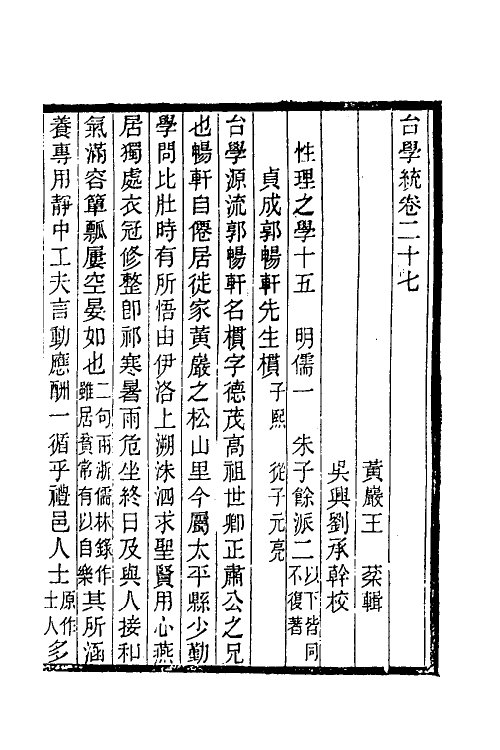 台學統卷二十七
黃巖王　棻輯
吳興劉承幹校
性理之學十五　明儒一　朱子餘派二以下皆同不復著
貞成郭暢軒先生樌子熙　從子元亮
台學源流郭暢軒名樌字德茂高祖世卿正肅公之兄
也暢軒自僊居徙家黃巖之松山里今屬太平縣少勤
學問比壯時有所悟由伊洛上溯洙泗求聖賢用心燕
居獨處衣冠修整卽祁寒暑雨危坐終日及與人接和
氣滿容簞瓢屢空晏如也二句兩浙儒林錄作雖居貧常有以自樂其所涵
養專用靜中工夫言動應酬一循乎禮邑人士原作士人多